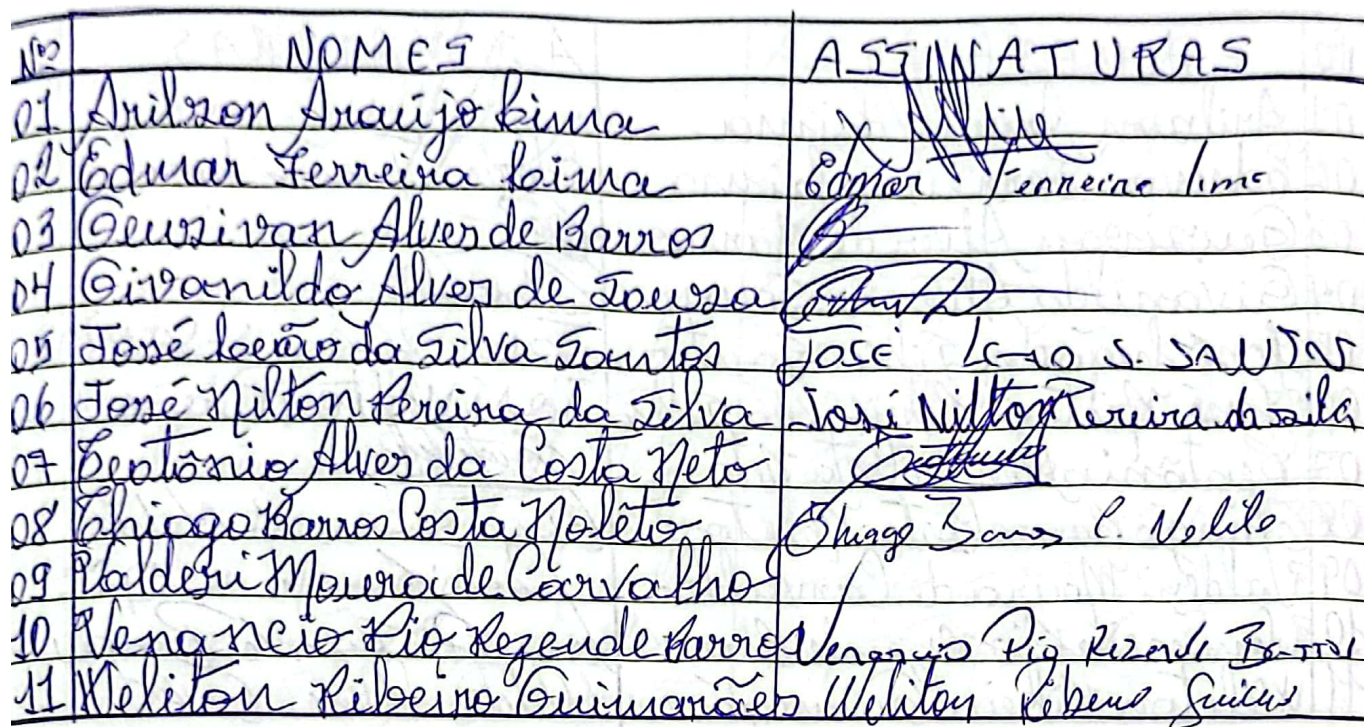 Nº NOMES ASSINATURAS
01 Arilson Araújo Lima
02 Edmar Ferreira Lima Edmar Ferreira lima
03 Geusivan Alves de Barros
04 Givanildo Alves de Souza
05 José Leão da Silva Santos JOSE S. SANTOS
06 José Nilton Pereira da Silva José Nilton Pereira da silva
07 Teotônio Alves da Costa Neto
08 Thiago Barros Costa Nolêto Thiago Barros C. Noleto
09 Valderi Moura de Carvalho
10 Venancio Pio Rezende Barros Venancio Pio Rezende Barros
11 Weliton Ribeiro Guimarães Weliton Ribeiro